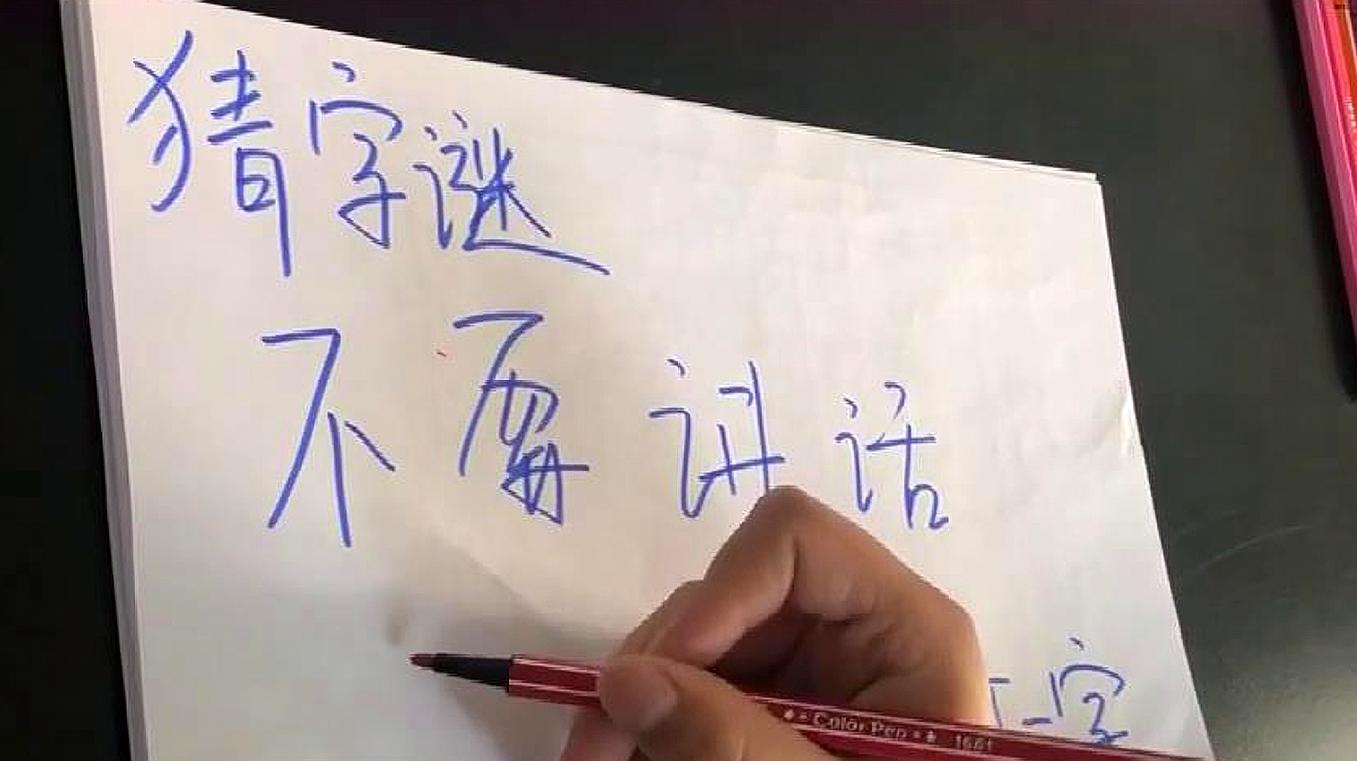 猜字谜
不要讲话
一字
Color Pen 1661